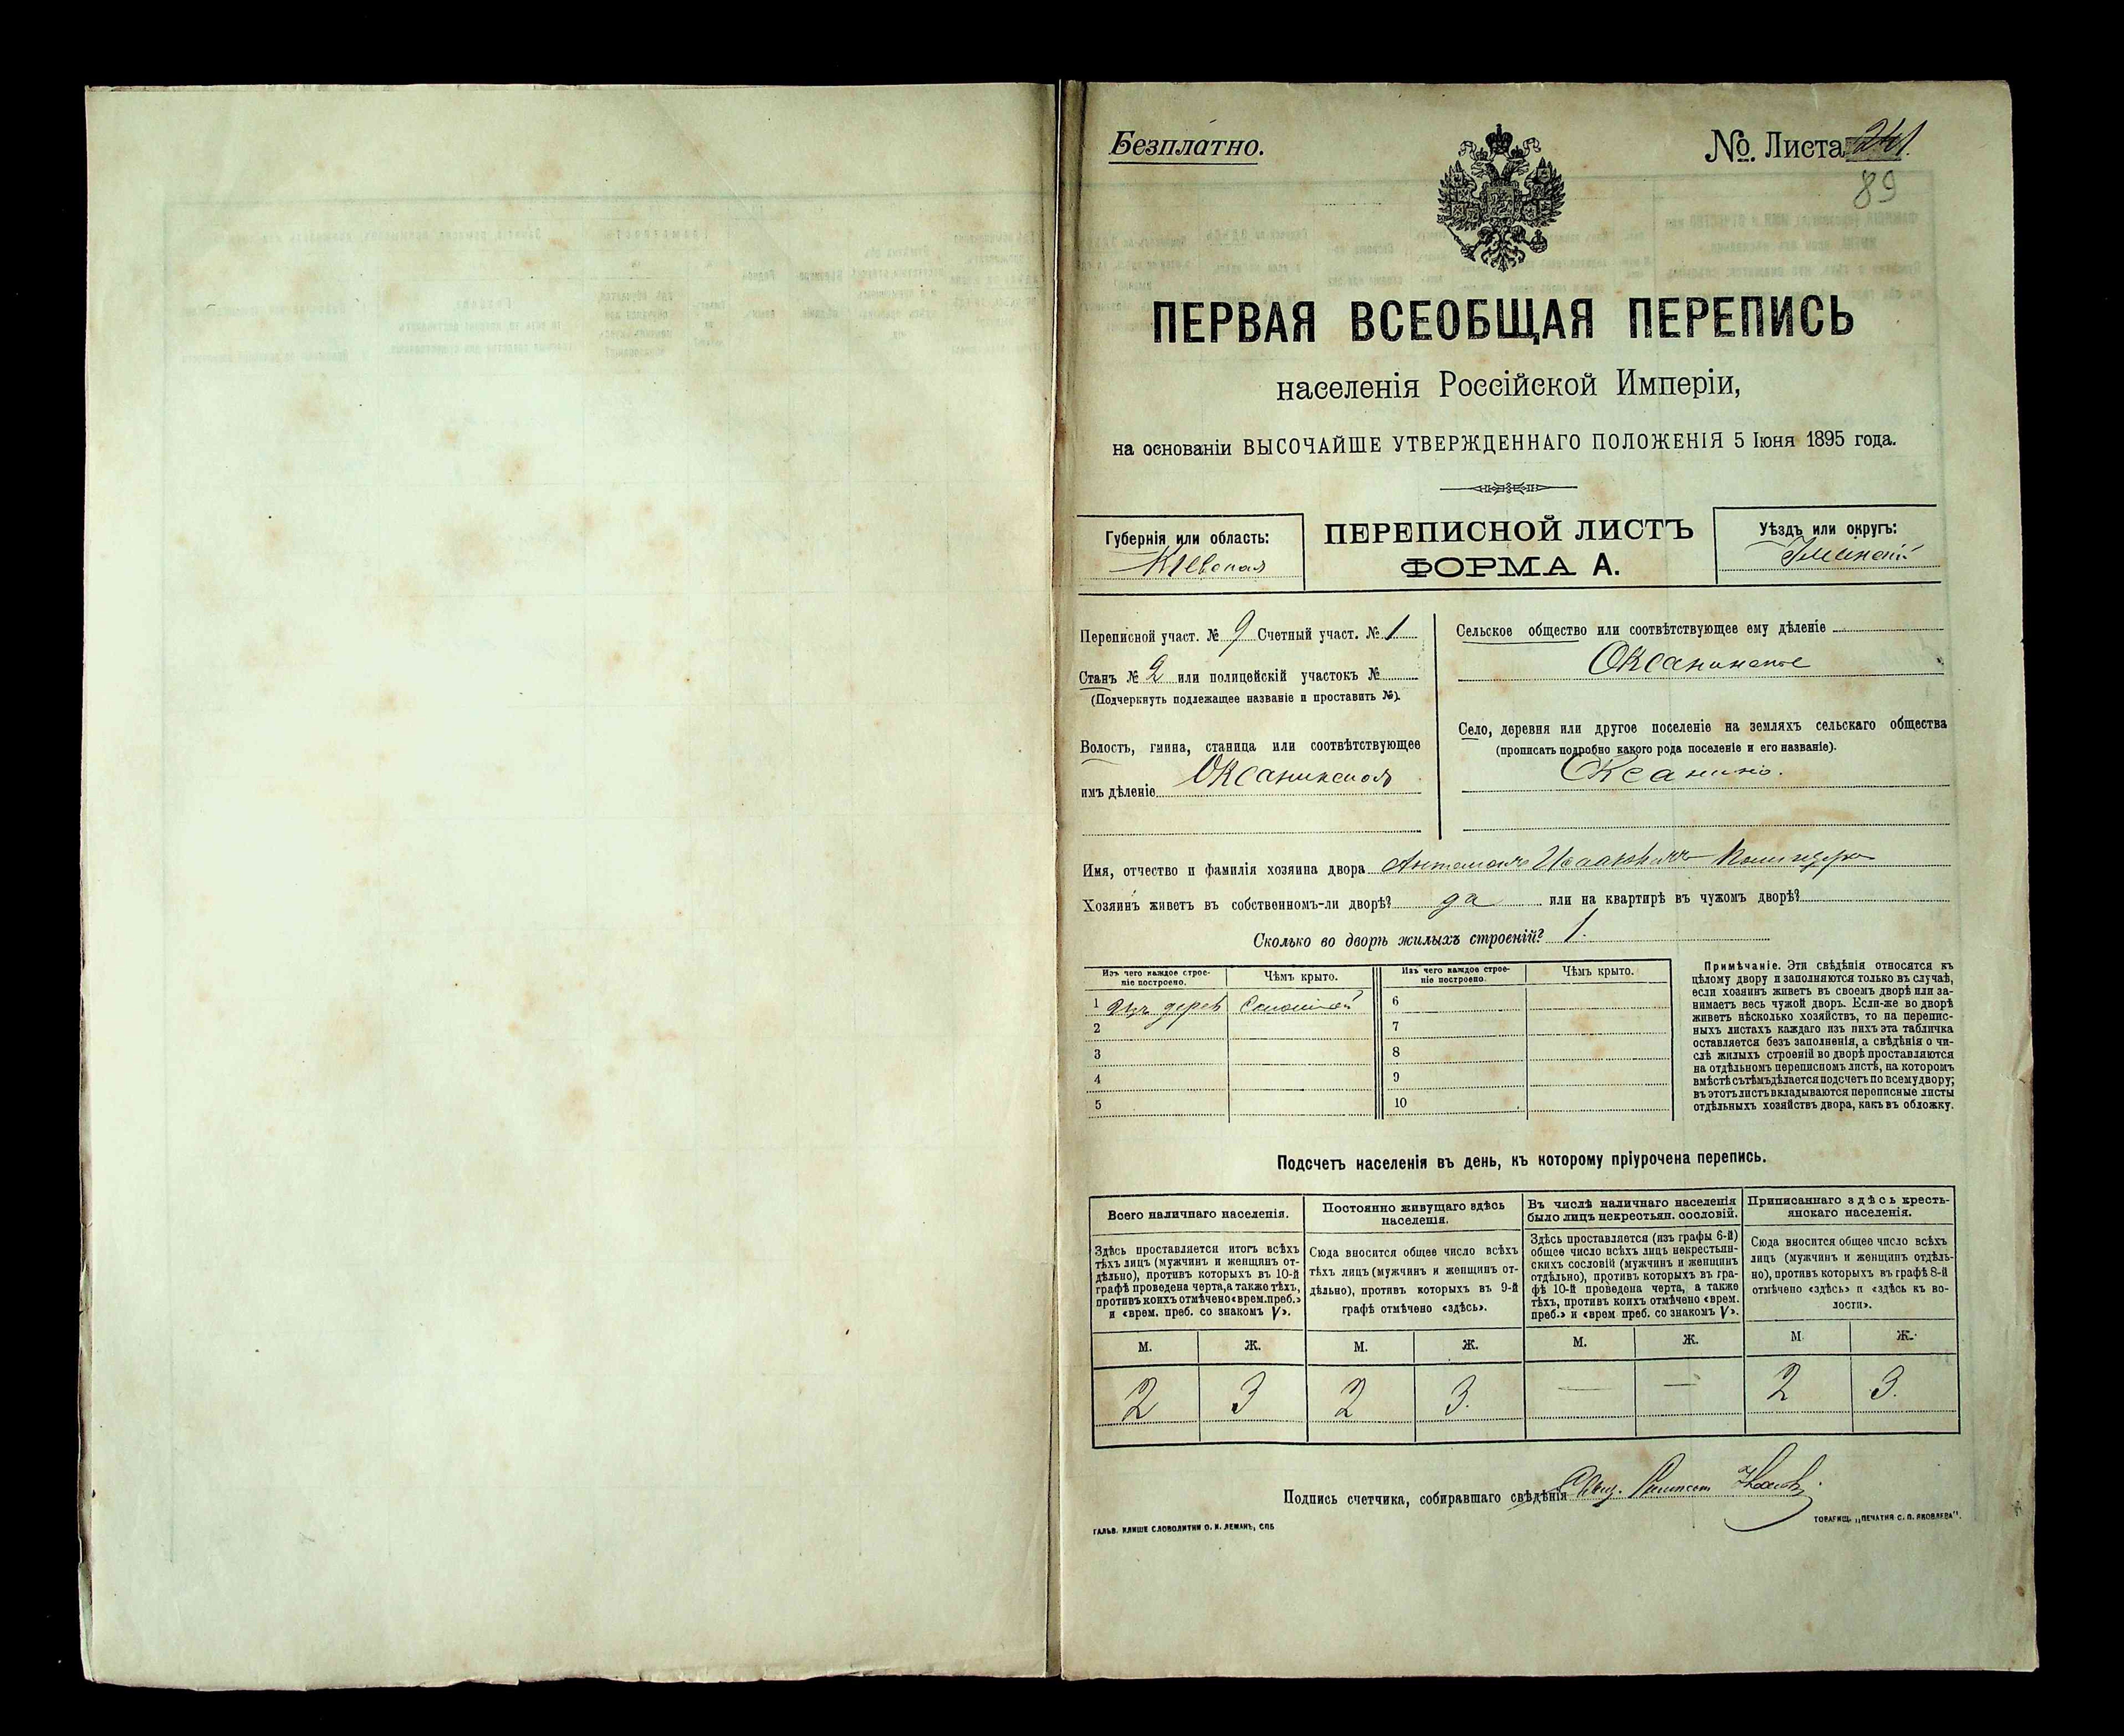 Безплатно.
№ Листа 241.
89
ПЕРВАЯ ВСЕОБЩАЯ ПЕРЕПИСЬ
населенія Россійской Имперіи,
на основаніи ВЫСОЧАЙШЕ УТВЕРЖДЕННАГО ПОЛОЖЕНІЯ 5 Іюня 1895 года.
Губернія или область:
Кіевская
ПЕРЕПИСНОЙ ЛИСТЪ
ФОРМА А.
Уѣздъ или округъ:
Уманскій
Переписной участ. № 9 Счетный участ. № 1
Станъ № 2 или полицейскій участокъ №
(Подчеркнуть подлежащее названіе и проставить №).
Волость, гмина, станица или соотвѣтствующее
имъ дѣленіе Оксанинская
Сельское общество или соотвѣтствующее ему дѣленіе
Оксанинское
Село, деревня или другое поселеніе на земляхъ сельскаго общества
(прописать подробно какого рода поселеніе и его названіе).
Оксанино.
Имя, отчество и фамилія хозяина двора
Хозяинъ живетъ въ собственномъ-ли дворѣ? да или на квартирѣ въ чужомъ дворѣ?
Сколько во дворѣ жилыхъ строеній? 1.
Изъ чего каждое строе-
ніе построено.
Чѣмъ крыто.
Изъ чего каждое строе-
ніе построено.
Чѣмъ крыто.
1 Изъ дерев Соломой 6
2 7
3 8
4 9
5 10
Примѣчаніе. Эти свѣдѣнія относятся къ
цѣлому двору и заполняются только въ случаѣ,
если хозяинъ живетъ въ своемъ дворѣ или за-
нимаетъ весь чужой дворъ. Если-же во дворѣ
живетъ нѣсколько хозяйствъ, то на перепис-
ныхъ листахъ каждаго изъ нихъ эта табличка
оставляется безъ заполненія, а свѣдѣнія о чи-
слѣ жилыхъ строеній во дворѣ проставляются
на отдѣльномъ переписномъ листѣ, на которомъ
вмѣстѣ съ тѣмъ дѣлается подсчетъ по всему двору;
въ этотъ листъ вкладываются переписные листы
отдѣльныхъ хозяйствъ двора, какъ въ обложку.
Подсчетъ населенія въ день, къ которому пріурочена перепись.
Всего наличнаго населенія.
Здѣсь проставляется итогъ всѣхъ
тѣхъ лицъ (мужчинъ и женщинъ от-
дѣльно), противъ которыхъ въ 10-й
графѣ проведена черта, а также тѣхъ,
противъ коихъ отмѣчено «врем. преб.»
и «врем. преб. со знакомъ V».
Постоянно живущаго здѣсь
населенія.
Сюда вносится общее число всѣхъ
тѣхъ лицъ (мужчинъ и женщинъ от-
дѣльно), противъ которыхъ въ 9-й
графѣ отмѣчено «здѣсь».
Въ числѣ наличнаго населенія
было лицъ некрестьян. сословій.
Здѣсь проставляется (изъ графы 6-й)
общее число всѣхъ лицъ некрестьян-
скихъ сословій (мужчинъ и женщинъ
отдѣльно), противъ которыхъ въ гра-
фѣ 10-й проведена черта, а также
тѣхъ, противъ коихъ отмѣчено «врем.
преб.» и «врем преб. со знакомъ V».
Приписаннаго здѣсь кресть-
янскаго населенія.
Сюда вносится общее число всѣхъ
лицъ (мужчинъ и женщинъ отдѣль-
но), противъ которыхъ въ графѣ 8-й
отмѣчено «здѣсь» и «здѣсь къ во-
лости».
М. Ж. М. Ж. М. Ж. М. Ж.
2 3 2 3. — — 2 3.
Подпись счетчика, собиравшаго свѣдѣнія
ГАЛЬВ. КЛИШЕ СЛОВОЛИТНИ О. И. ЛЕМАНЪ, СПБ
ТОВАРИЩ. „ПЕЧАТНЯ С. П. ЯКОВЛЕВА".